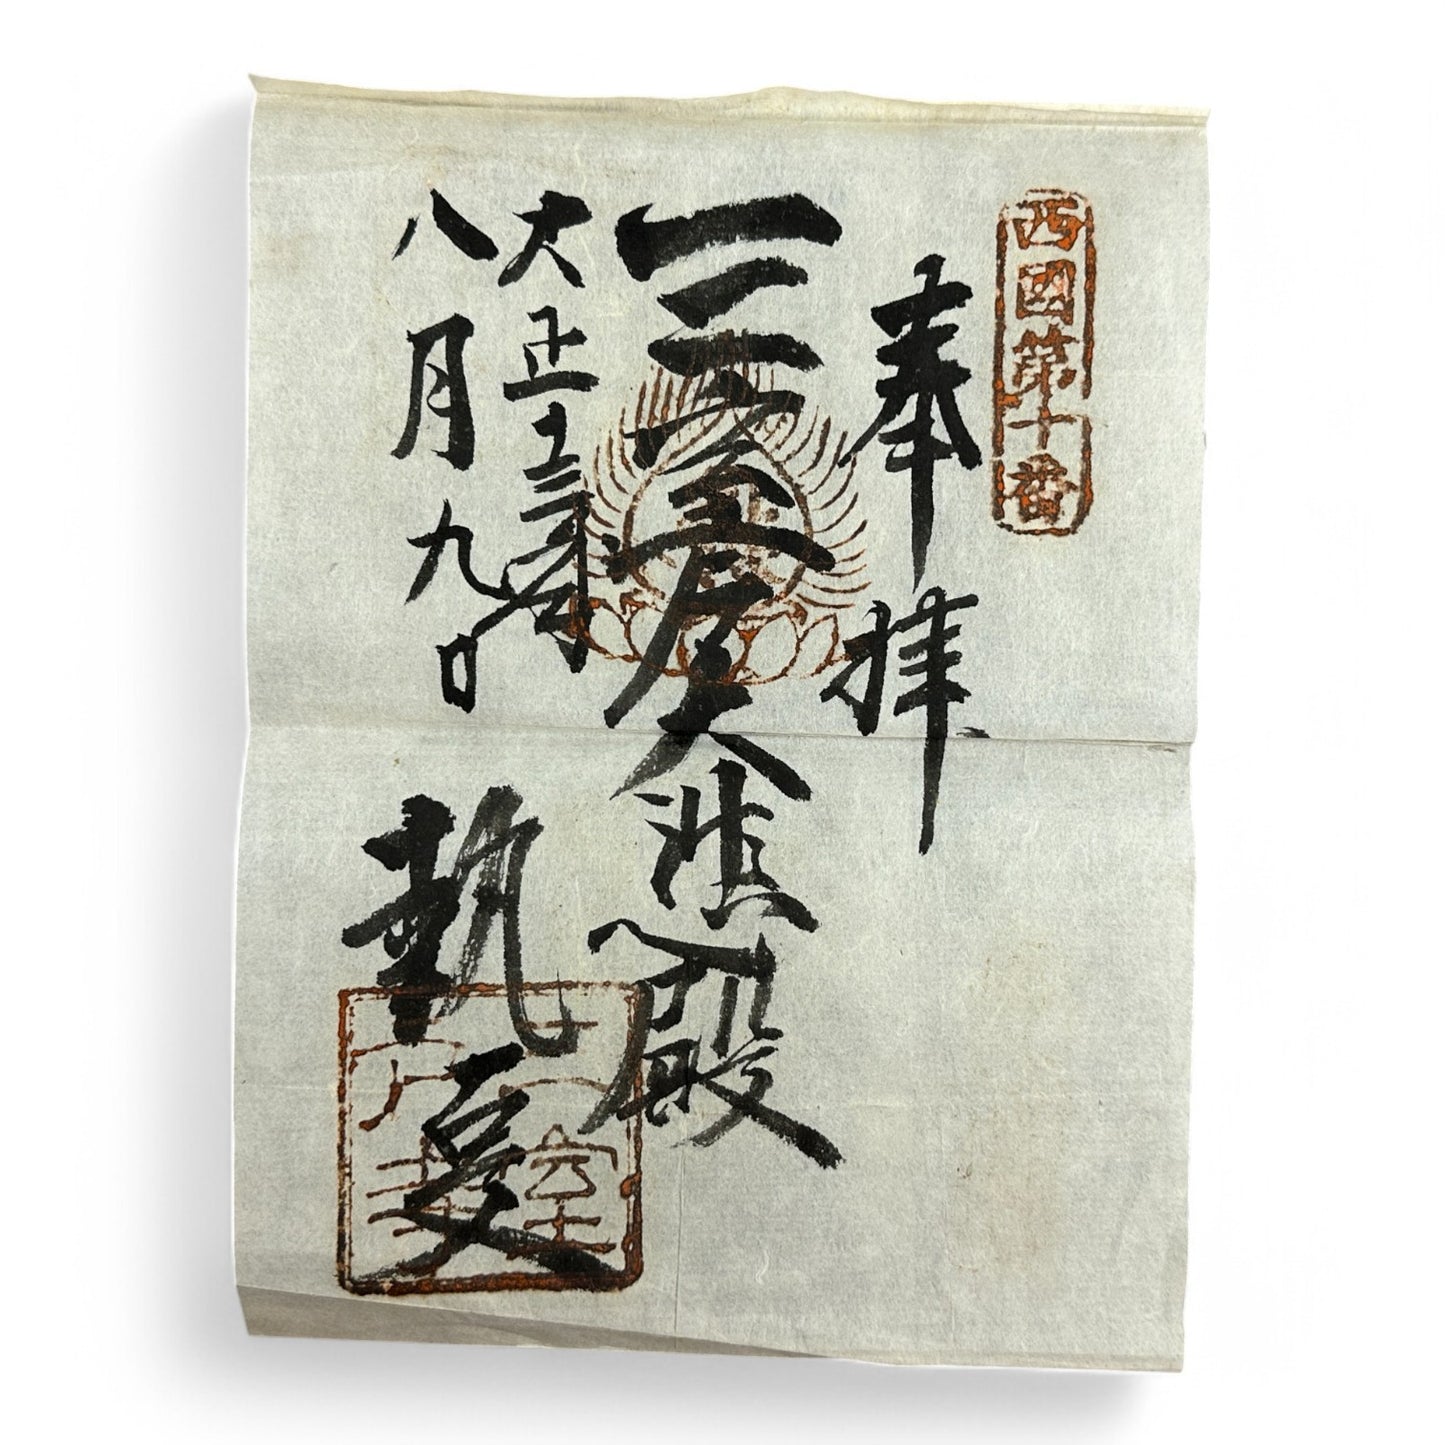 西國第十番
奉拝
三室戸大悲殿
大正十三年
八月九日
執叓
三室戸寺